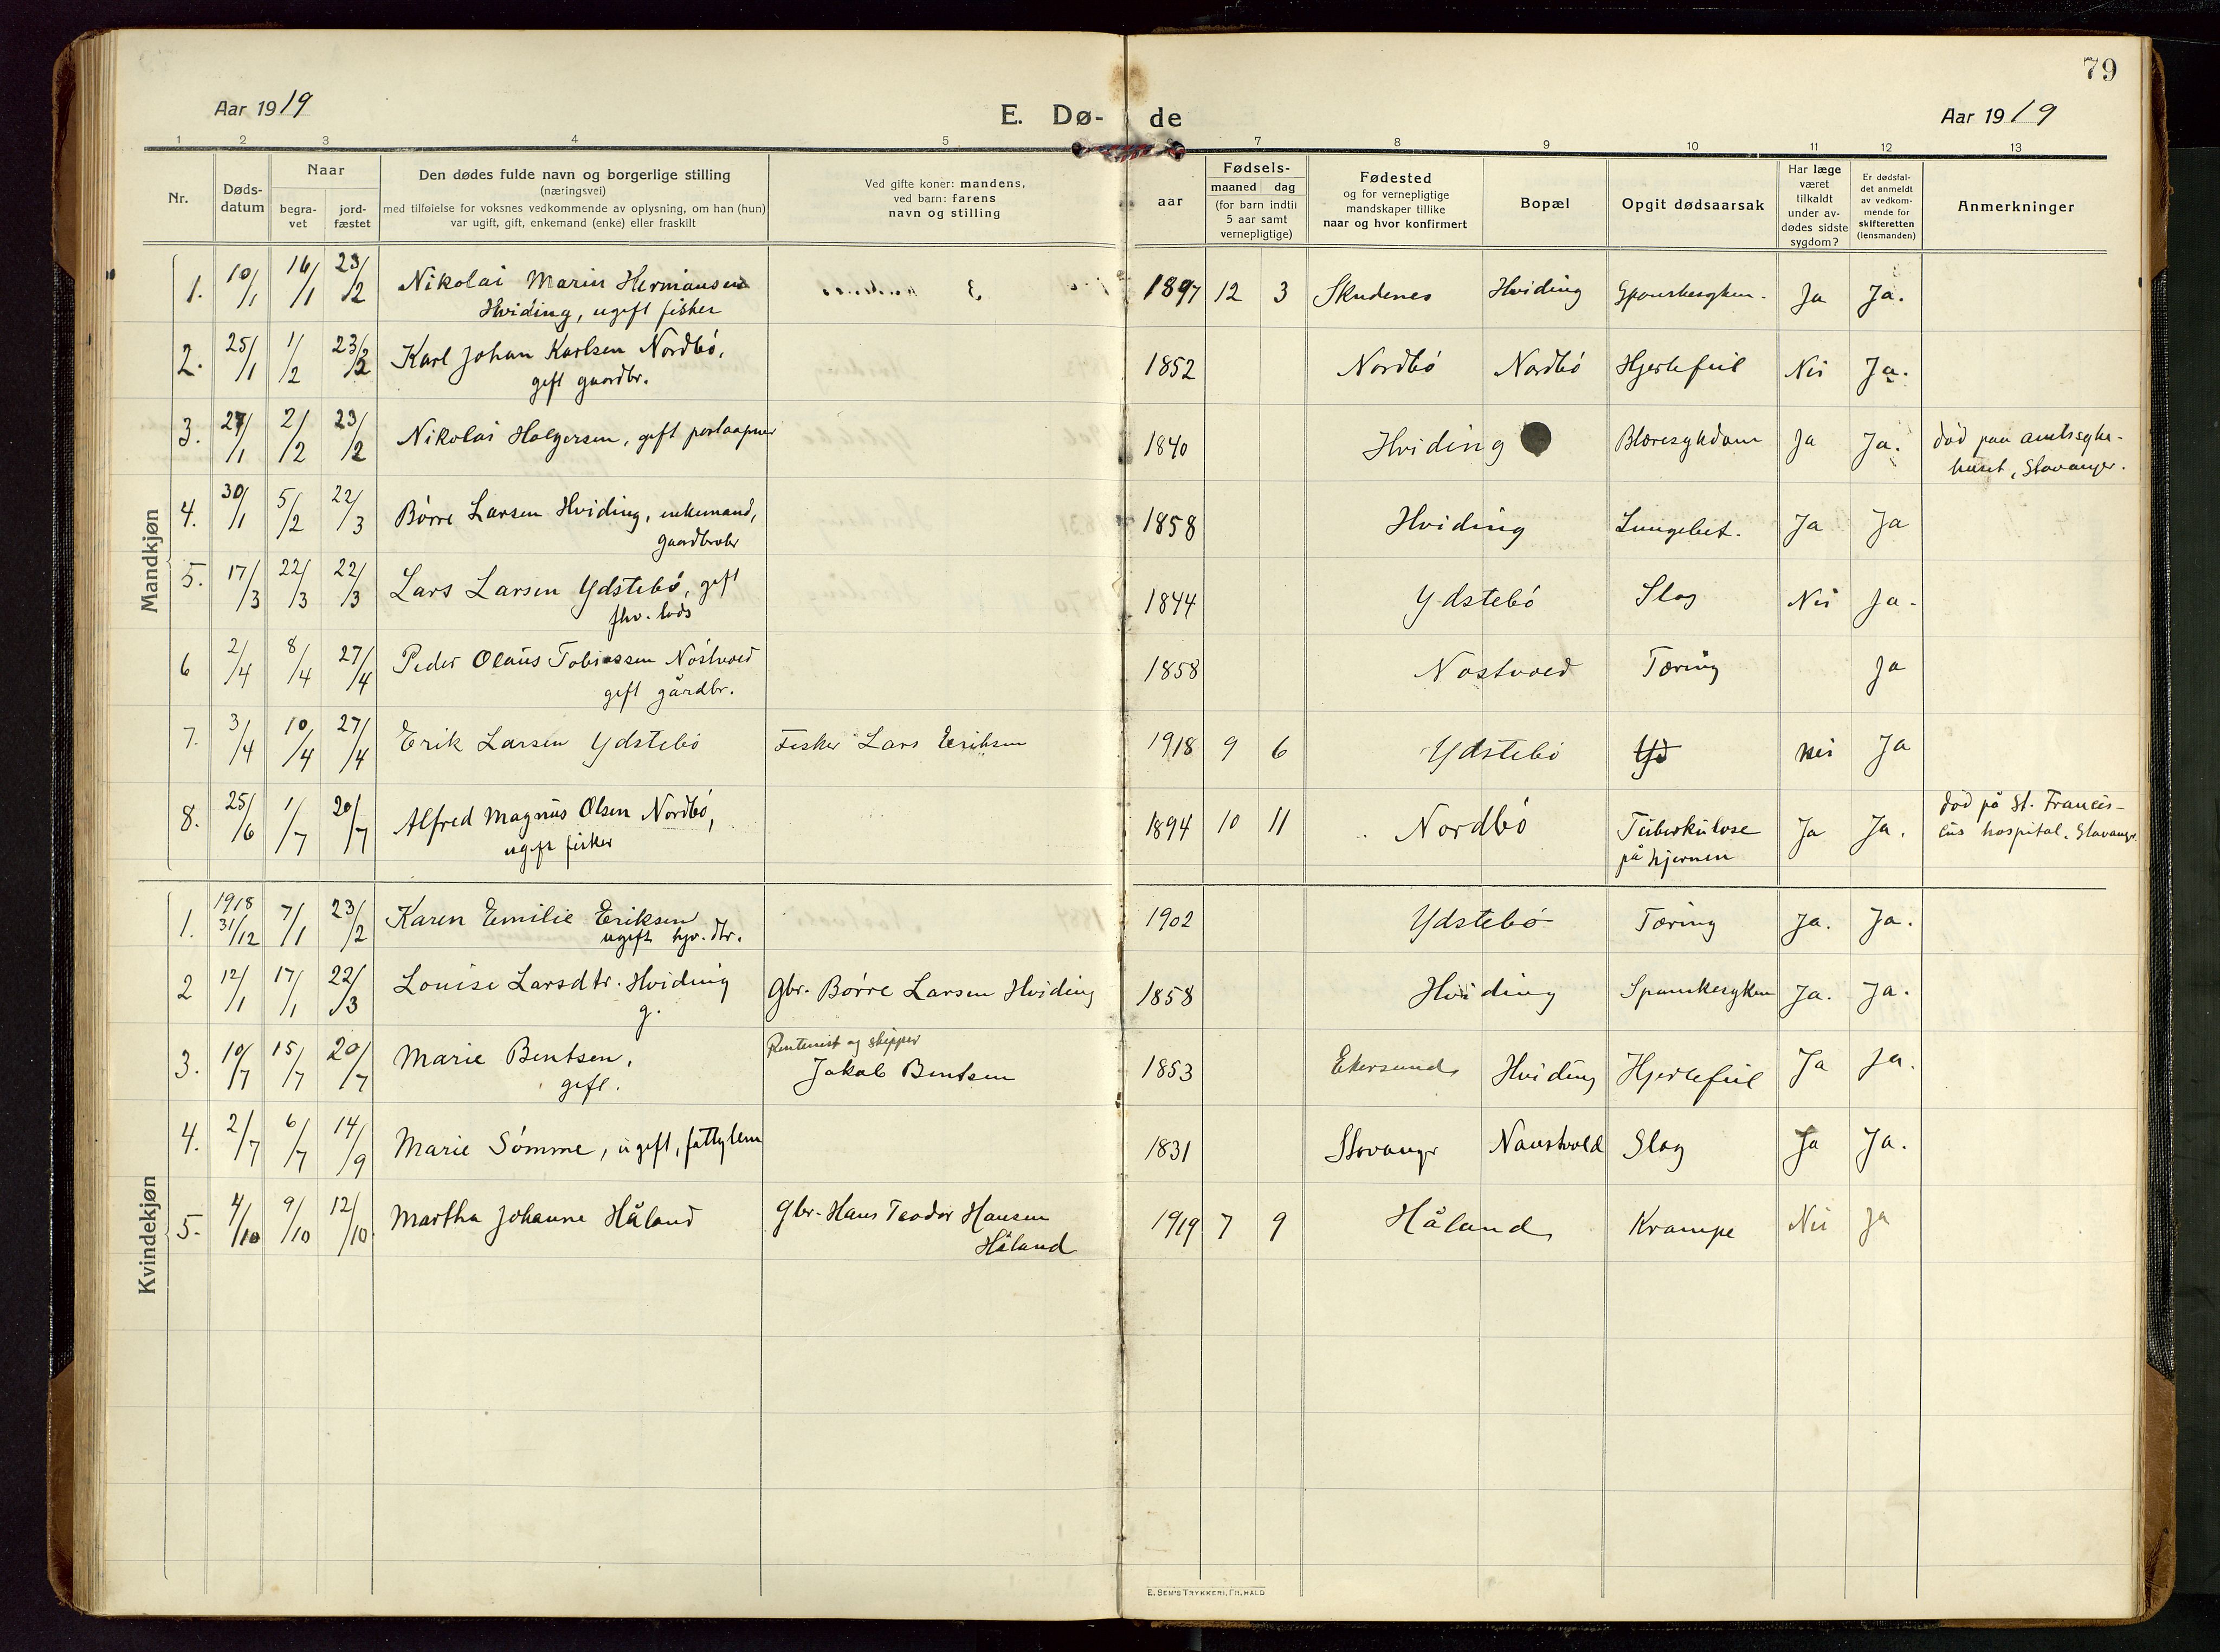 79
Aar 1919
E. Dø-
de
Aar 1919
1 2 3 4 5 7 8 9 10 11 12 13
Nr.
Døds-
datum
Naar
begra-
vet
jord-
fæstet
Den dødes fulde navn og borgerlige stilling
(næringsvei)
med tilføielse for voksnes vedkommende av oplysning, om han (hun)
var ugift, gift, enkemand (enke) eller fraskilt
Ved gifte koner: mandens,
ved barn: farens
navn og stilling
aar
Fødsels-
maaned dag
(for barn indtil
5 aar samt
vernepligtige)
Fødested
og for vernepligtige
mandskaper tillike
naar og hvor konfirmert
Bopæl
Opgit dødsaarsak
Har læge
været
tilkaldt
under av-
dødes sidste
sygdom?
Er dødsfal-
det anmeldt
av vedkom-
mende for
skifteretten
(lensmanden)
Anmerkninger
Mandkjøn
1. 10/1 16/1 23/2 Nikolai Marin Hermansen 1897 12 3 Skudenes Hviding Spanskesyken. Ja Ja.
Hviding, ugift fisker
2. 25/1 1/2 23/2 Karl Johan Karlsen Nordbó, 1852 Nordbó Nordbó Hjertefeil Nei Ja.
gift gaardbr.
3. 27/1 2/2 23/2 Nikolai Holgersen, gift postaapner 1840 Hviding Blæresykdom Ja Ja. död paa amtssyke-
huset, Stavanger.
4. 30/1 5/2 22/3 Börre Larsen Hviding, enkemand, 1858 Hviding Lungebet. Ja Ja
gaardbruker
5. 17/3 22/3 22/3 Lars Larsen Ydstebó, gift 1844 Ydstebó Slag Nei Ja.
fhv. lods
6 2/4 8/4 27/4 Peder Olaus Tobiassen Nóstvoed 1858 Nostvoed Tæring Ja
gift gårdbr.
7. 3/4 10/4 27/4 Erik Larsen Ydstebó Fisker Lars Eriksen 1918 9 6 Ydstebó Nei Ja
8. 25/6 1/7 20/7 Alfred Magnus Olsen Nordbó, 1894 10 11 Nordbó Tuberkulose Ja Ja. död på St. Francis-
ugift fisker på hjernen cus hospital, Stavanger
Kvindekjøn
1. 1918 31/12 7/1 23/2 Karen Emilie Eriksen 1902 Ydstebó Tæring Ja. Ja.
ugift hjv. dtr.
2 12/1 17/1 22/3 Louise Larsdtr. Hviding Gbr. Börre Larsen Hviding 1858 Hviding Spanskesyken Ja. Ja.
g.
3. 10/7 15/7 20/7 Marie Bentsen, Rentenist og skipper 1853 Ekersund Hviding Hjertefeil Ja Ja.
gift. Jakob Bentsen
4. 2/7 6/7 14/9 Marie Sómme, ugift, fattiglem 1831 Stavanger Naustvold Slag Ja Ja.
5. 4/10 9/10 12/10 Martha Johanne Håland Gbr. Hans Teodor Hansen 1919 7 9 Håland Krampe Nei Ja
Håland
E. SEM'S TRYKKERI, FR. HALD